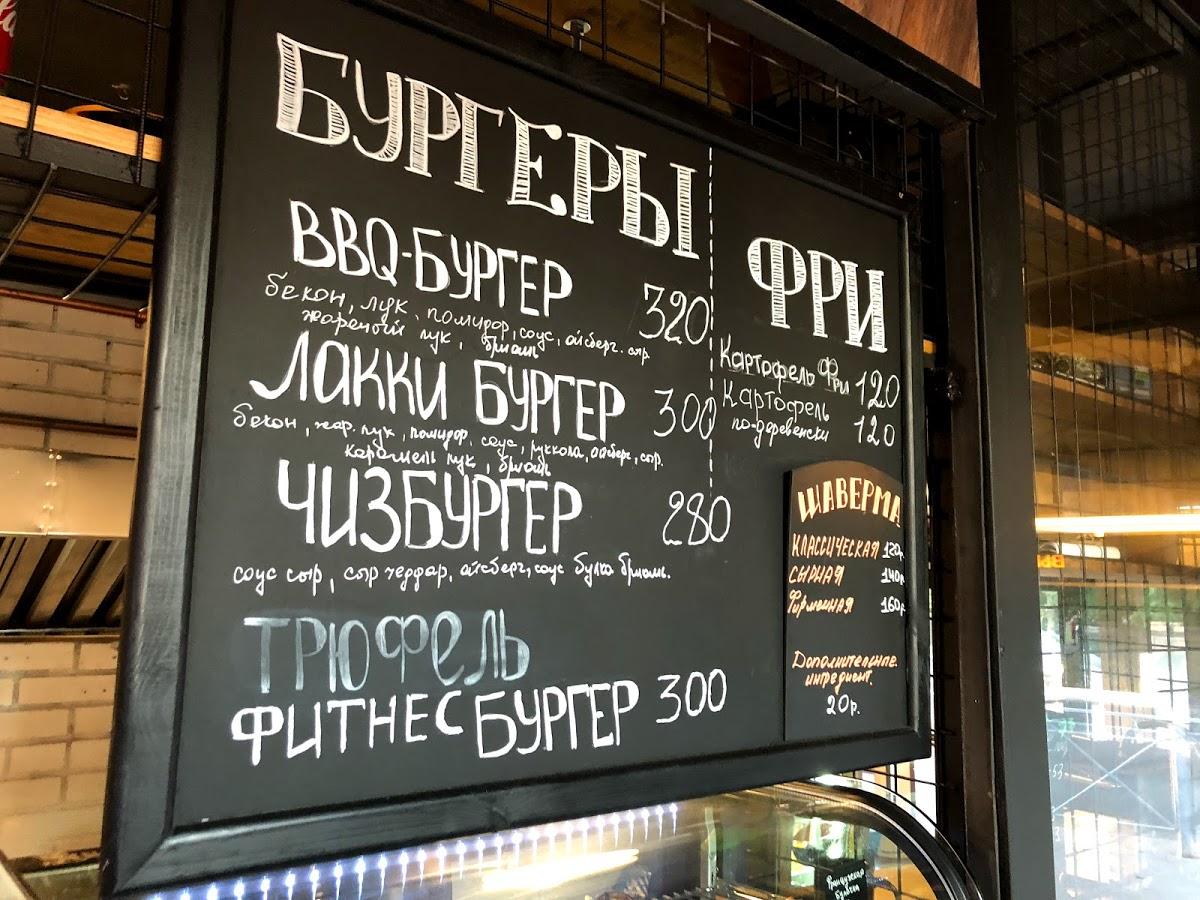 БУРГЕРЫ
BBQ-БУРГЕР 320
бекон, лук, помидор, соус, айсберг. сыр.
жареный лук, бриошь
ЛАККИ БУРГЕР 300
бекон, жар. лук, помидор, соус, руккола, айсберг, сыр.
карамель лук, бриошь
ЧИЗБУРГЕР 280
соус сыр, сыр чеддар, айсберг, соус булка бриошь.
ТРЮФЕЛЬ
ФИТНЕС БУРГЕР 300
ФРИ
Картофель Фри 120
Картофель
по-деревенски 120
ШАВЕРМА
КЛАССИЧЕСКАЯ 120р.
СЫРНАЯ 140р.
Фирменная 160р.
Дополнительные.
ингредиент.
20р.
Французская
булочка